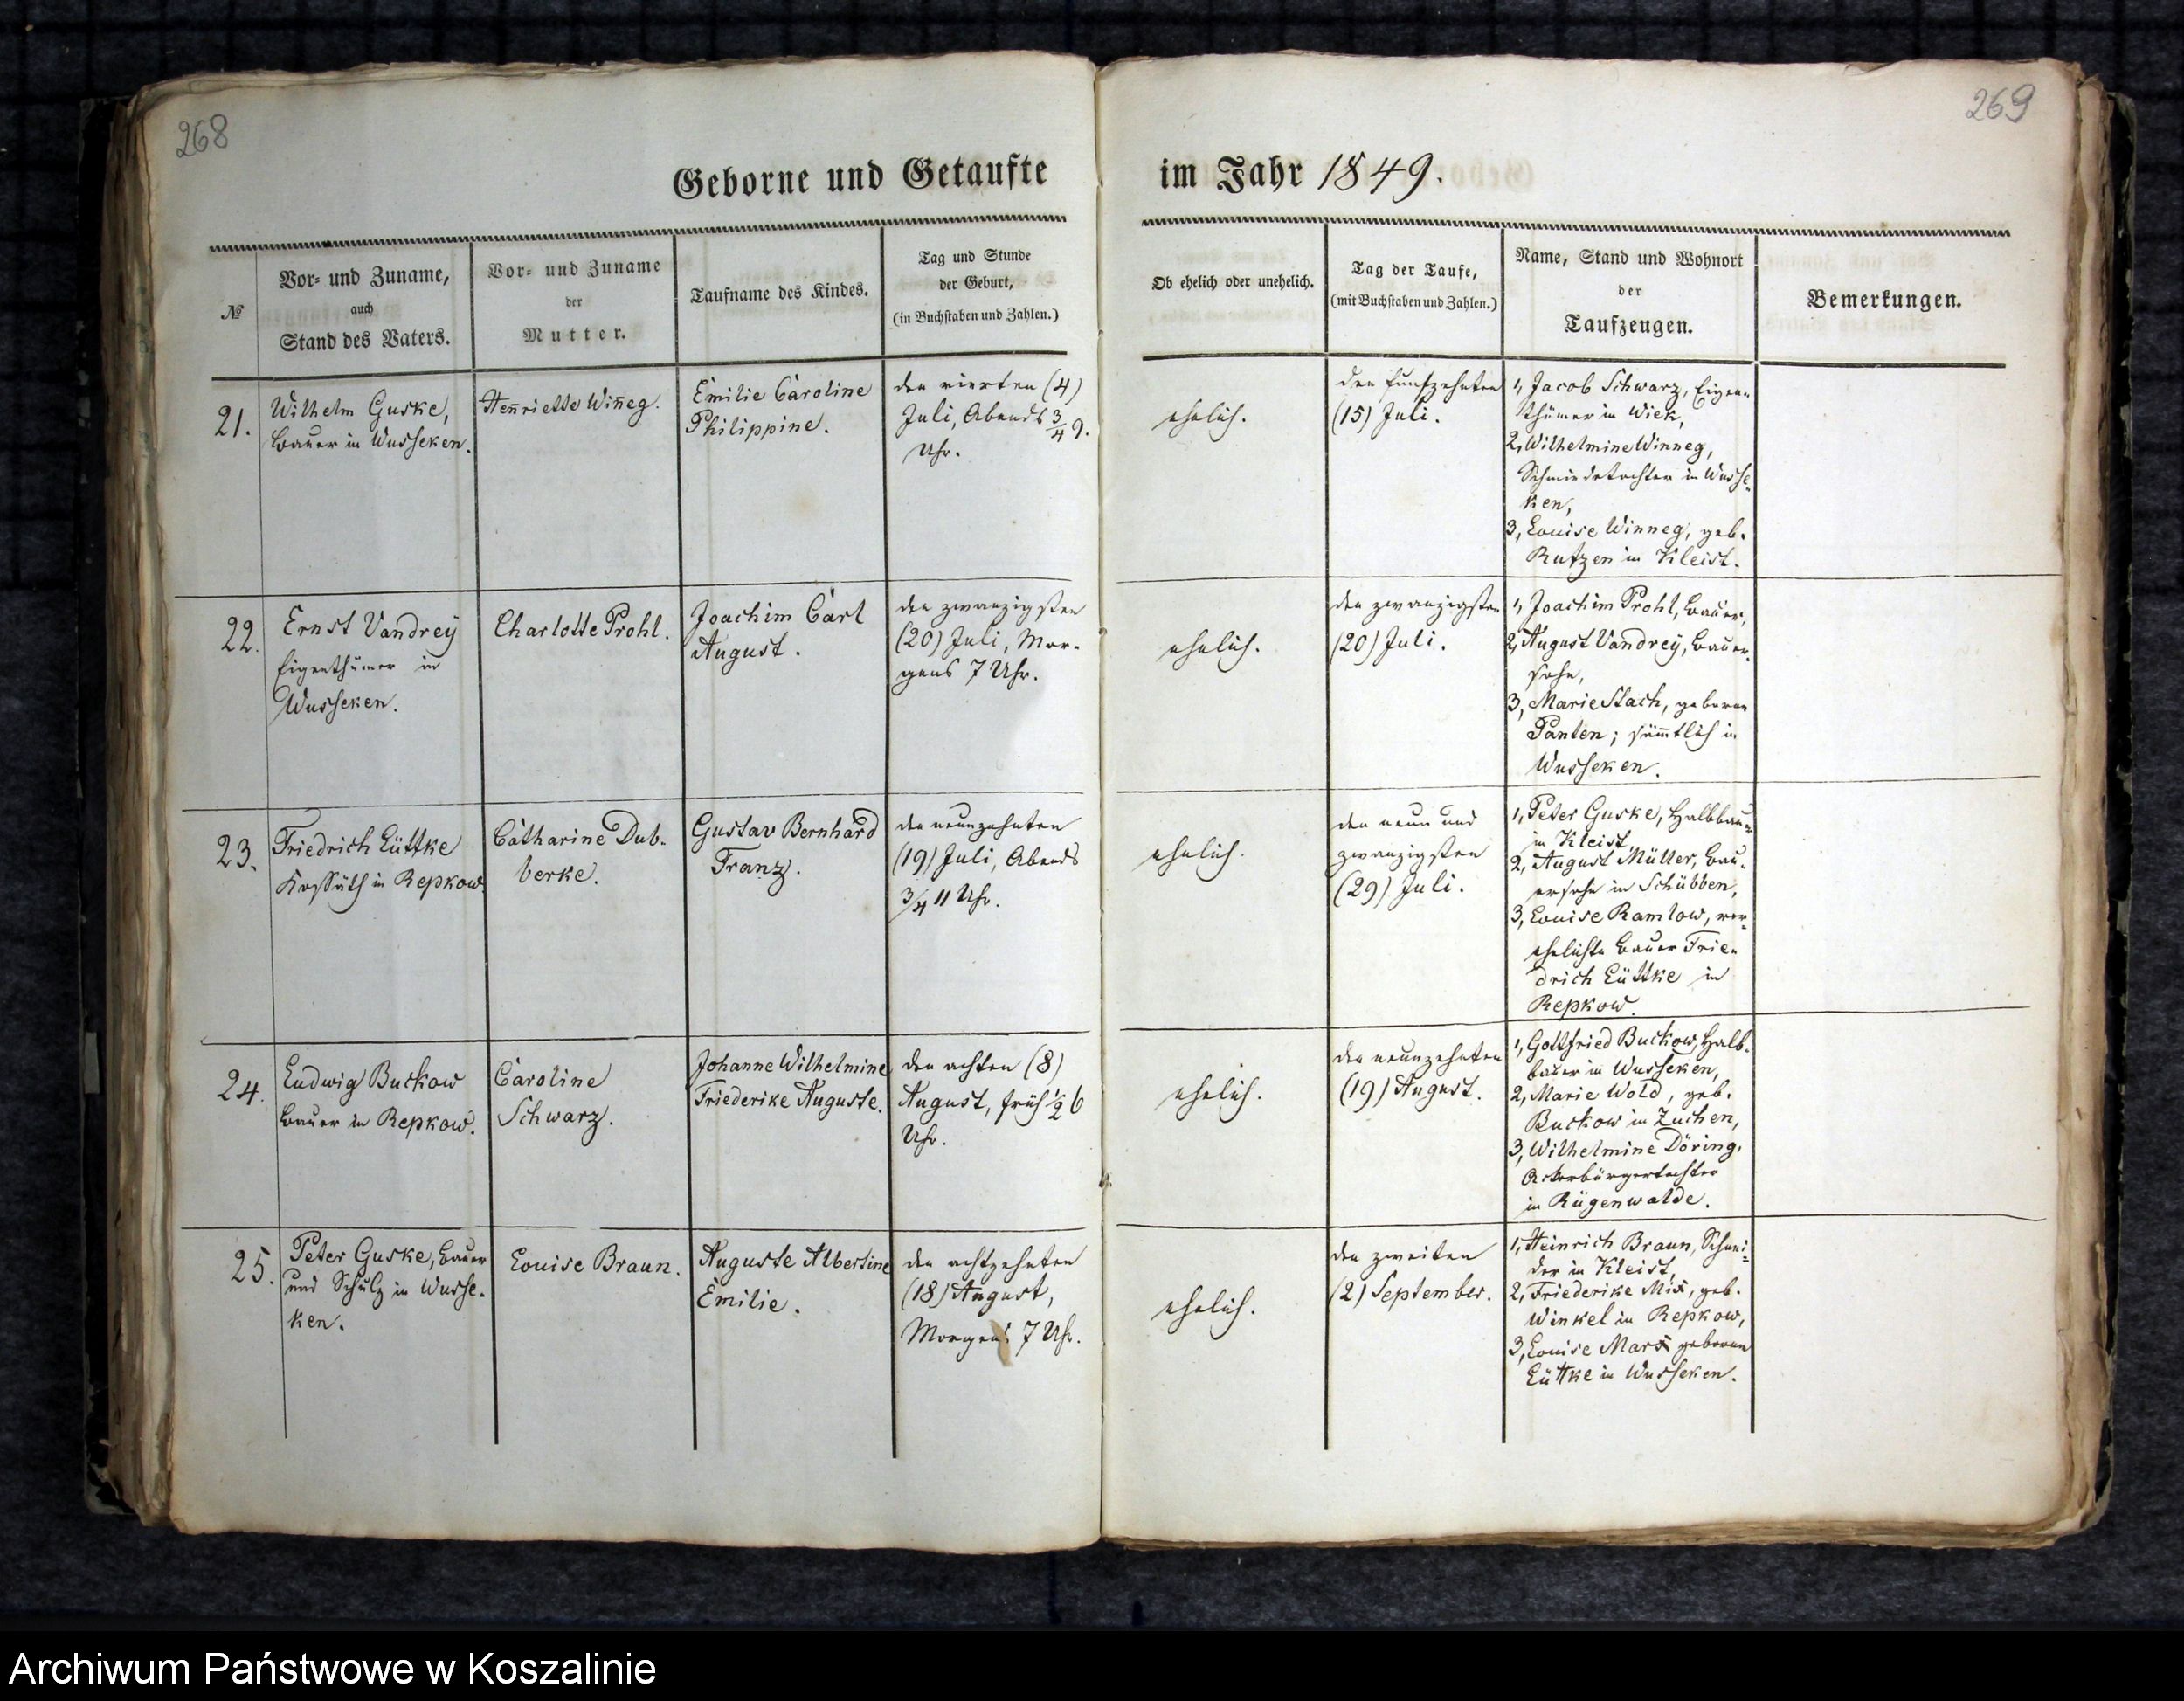 268
269
Geborne und Getaufte
im Jahr 1849.
№
Vor- und Zuname,
auch
Stand des Vaters.
Vor- und Zuname
der
Mutter.
Taufname des Kindes.
Tag und Stunde
der Geburt,
(in Buchstaben und Zahlen.)
Ob ehelich oder unehelich.
Tag der Taufe,
(mit Buchstaben und Zahlen.)
Name, Stand und Wohnort
der
Taufzeugen.
Bemerkungen.
21.
Wilhelm Guske,
Bauer in Wusseken.
Henriette Win̅eg.
Emilie Caroline
Philippine.
den vierten (4)
Juli, Abends 3/4 9.
Uhr.
ehelich.
den funfzehnten
(15) Juli.
1, Jacob Schwarz, Eigen-
thümer in Wiek,
2, Wilhelmine Winneg,
Schmiedetochter in Wusse-
ken,
3, Louise Winneg, geb.
Rutzen in Kleist.
22.
Ernst Vandrey
Eigenthümer in
Wusseken.
Charlotte Prohl.
Joachim Carl
August.
den zwanzigsten
(20) Juli, Mor-
gens 7 Uhr.
ehelich.
den zwanzigsten
(20) Juli.
1, Joachim Prohl, Bauer,
2, August Vandrey, Bauer-
sohn,
3, Marie Stach, geborne
Panten; säm̅tlich in
Wusseken.
23.
Friedrich Lüttke
Kossäth in Repkow.
Catharine Dub-
berke.
Gustav Bernhard
Franz.
den neunzehnten
(19) Juli, Abends
3/4 11 Uhr.
ehelich.
den neun und
zwanzigsten
(29) Juli.
1, Peter Guske, Halbbauer
in Kleist,
2, August Müller, Bau-
ersohn in Schübben,
3, Louise Ramlow, ver-
ehelichte Bauer Frie-
drich Lüttke in
Repkow.
24.
Ludwig Buckow
Bauer in Repkow.
Caroline
Schwarz.
Johanne Wilhelmine
Friederike Auguste.
den achten (8)
August, früh 1/2 6
Uhr.
ehelich.
den neunzehnten
(19) August.
1, Gottfried Buckow, Halb-
bauer in Wusseken,
2, Marie Wold, geb.
Buckow in Zuchen,
3, Wilhelmine Döring,
Ackerbürgertochter
in Rügenwalde.
25.
Peter Guske, Bauer
und Schulz in Wusse-
ken.
Louise Braun.
Auguste Albertine
Emilie.
den achtzehnten
(18) August,
Morgens 7 Uhr.
ehelich.
den zweiten
(2) September.
1, Heinrich Braun, Schnei-
der in Kleist,
2, Friederike Mix, geb.
Winkel in Repkow,
3, Louise Marx geborne
Lüttke in Wusseken.
Archiwum Państwowe w Koszalinie